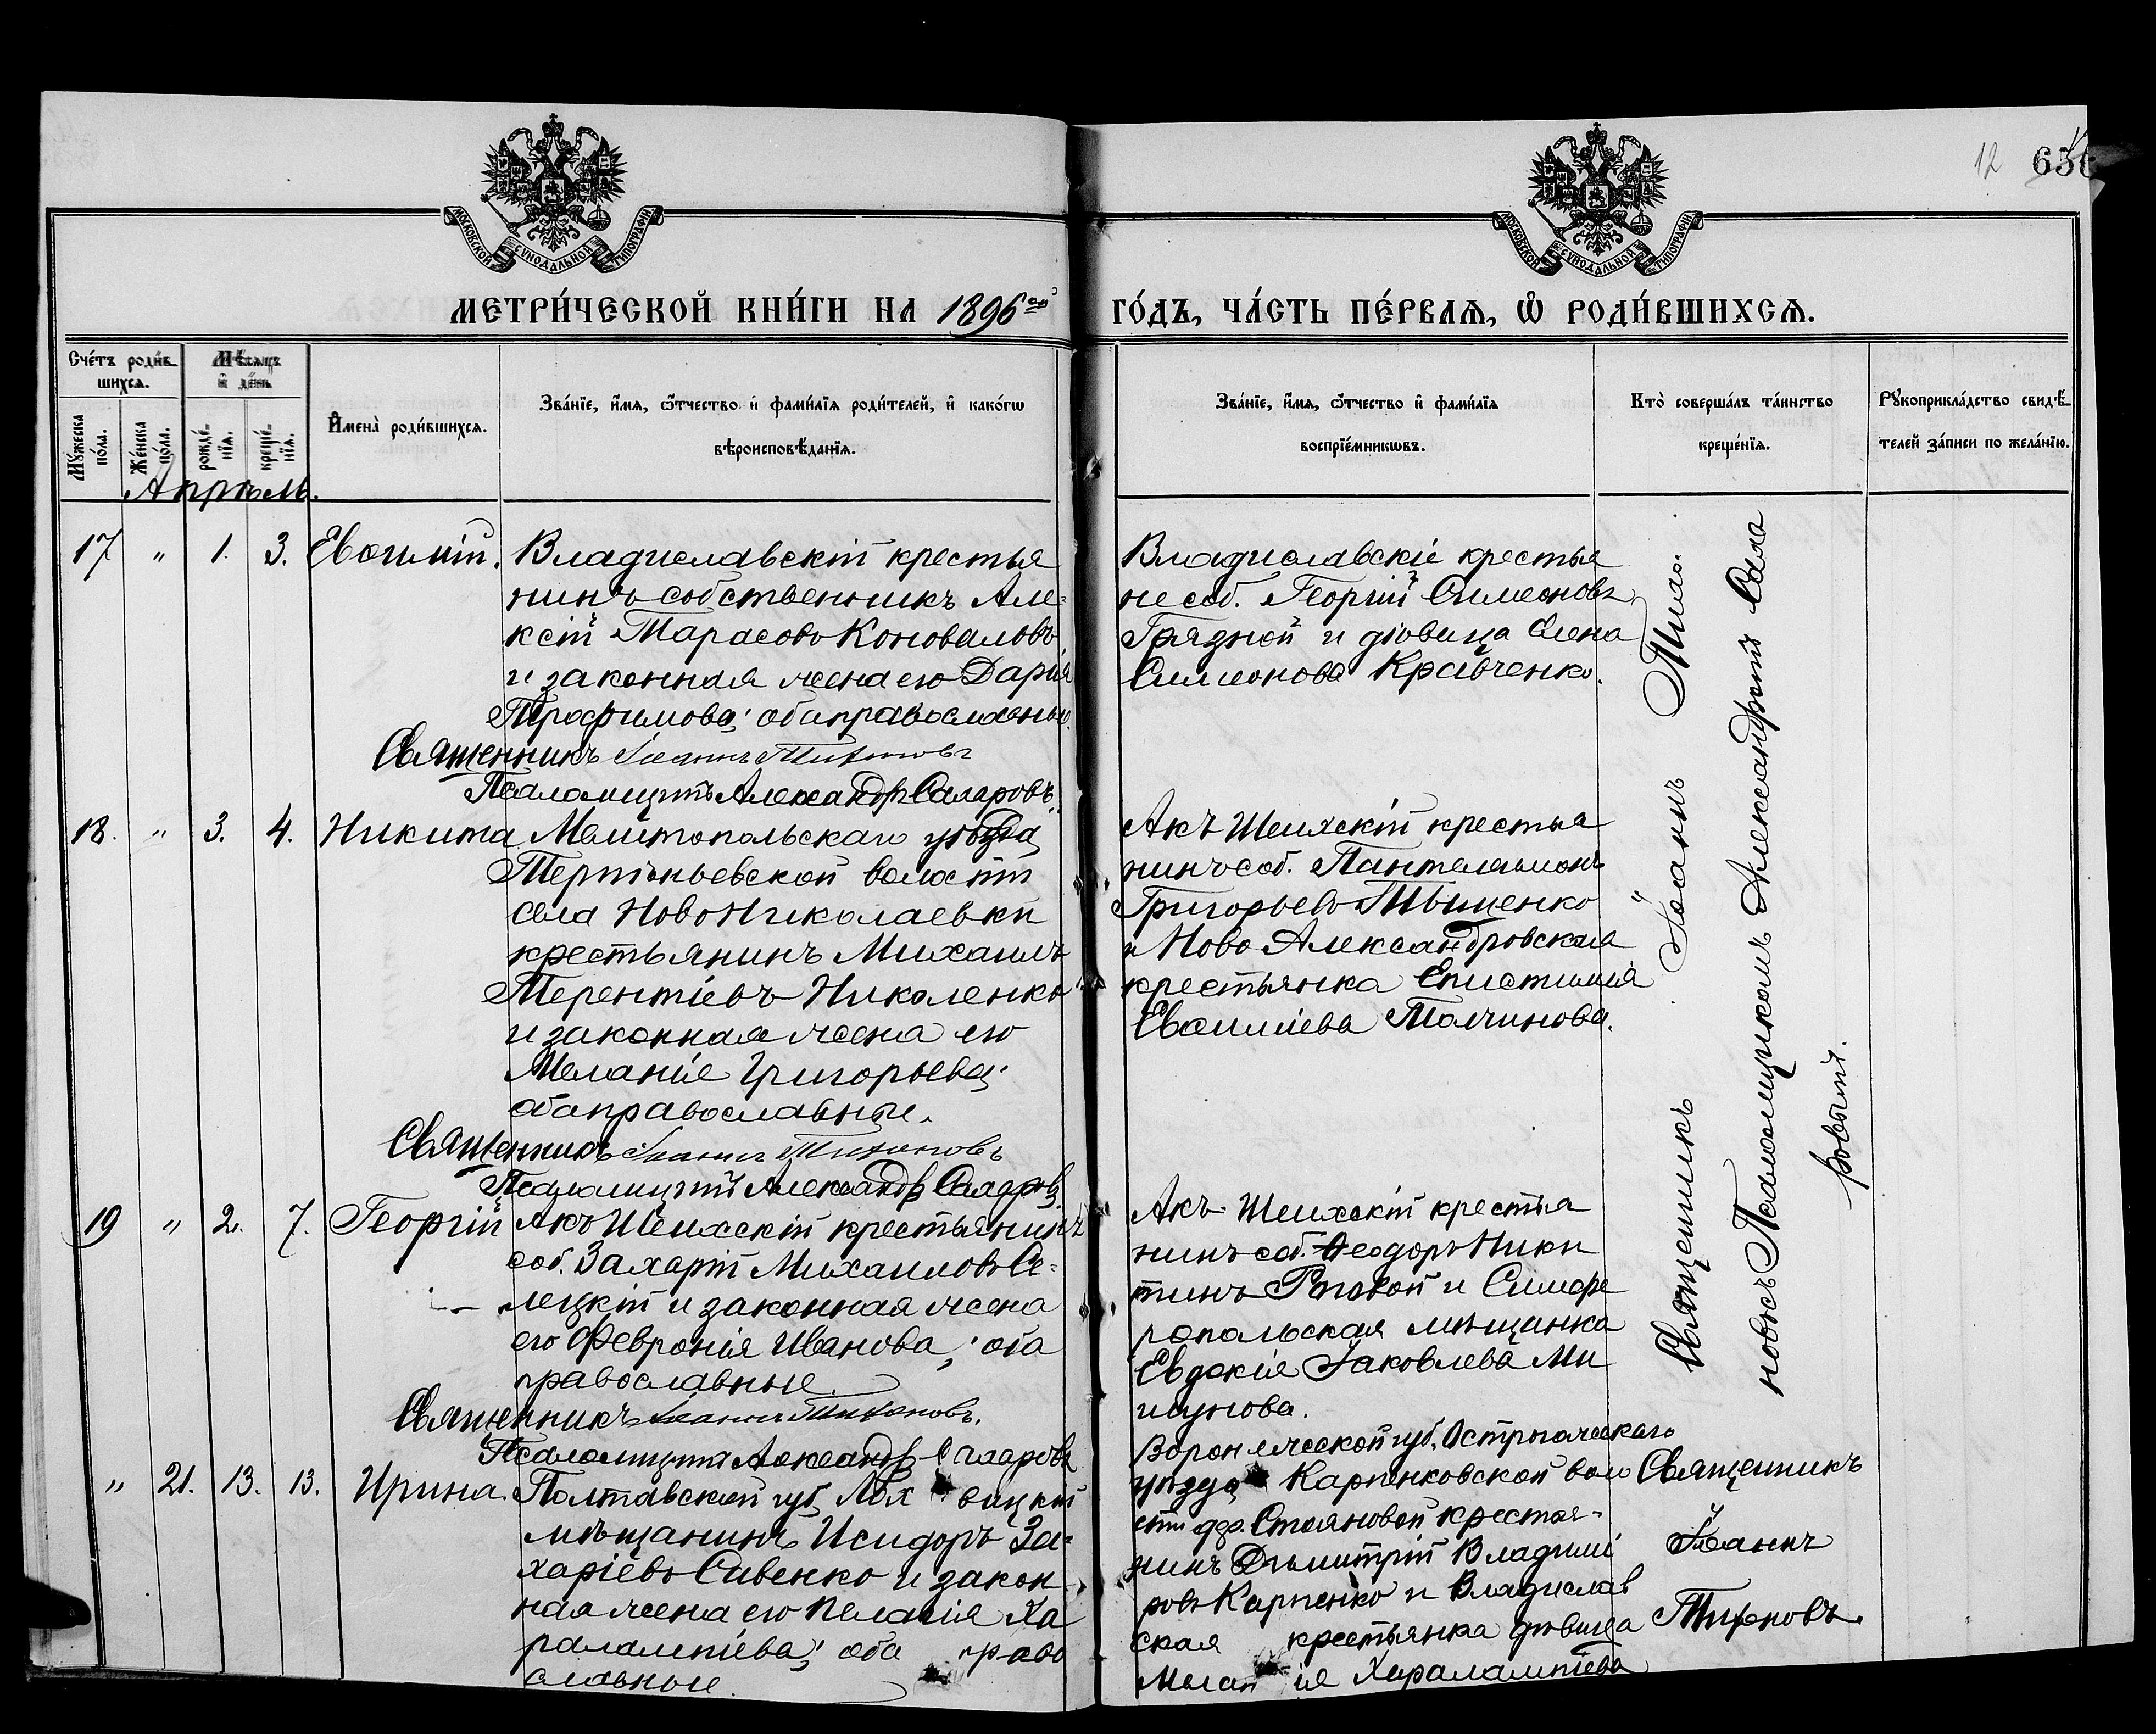 12 656
МОСКОВСКОЙ СѴНОДАЛЬНОЙ ТИПОГРАФІИ
МОСКОВСКОЙ СѴНОДАЛЬНОЙ ТИПОГРАФІИ
МЕТРИ́ЧЕСКОЙ КНИ́ГИ НА 1896ой
ГО́ДЪ, ЧА́СТЬ ПЕ́РВАѦ, Ѡ҆ РОДИ́ВШИХСѦ.
Сче́тъ роди́в-
шихсѧ.
Мѣ́сѧцъ
и҆ де́нь
Мꙋ́жеска
по́ла.
Же́нска
по́ла.
рожде́-
нїѧ.
креще́-
нїѧ.
И҆мена̀ роди́вшихсѧ.
Зва́нїе, и҆́мѧ, ѻ҆́тчество и҆ фами́лїѧ роди́телей, и҆ како́гѡ
вѣроисповѣ́данїѧ.
Зва́нїе, и҆́мѧ, ѻ҆́тчество и҆ фами́лїѧ
воспрїе́мникѡвъ.
Кто̀ соверша́лъ та́инство
креще́нїѧ.
Рꙋкоприкла́дство свидѣ́-
телей за́писи по жела́нїю.
Апрѣль.
17 " 1. 3. Евѳимій.
Владиславскій крестья
нинъ собственникъ Але-
ксѣй Тарасовъ Коноваловъ
и законная жена его Дарія
Трофимова; оба православные.
Священникъ Іоаннъ Тихоновъ
Псаломщикъ Александръ Сапаровъ
Владиславскіе крестья
не соб. Георгій Симеоновъ
Грязной и дѣвица Елена
Симеонова Кравченко.
18. " 3. 4. Никита
Мелитопольскаго уѣзда
волости
села НовоНиколаевки
крестьянинъ Михаилъ
Терентіевъ Николенко
и законная жена его
Меланіе Григорьева;
оба православные.
Священникъ Іоаннъ Тихоновъ
Псаломщикъ Александръ
Акъ Шеихскій крестья
нинъ соб. Пантелеимонъ
Григорьевъ Тыщенко
и Ново Александровская
крестьянка Епистимія
Евѳиміева Толчинова.
19 " 2. 7. Георгій
Акъ Шеихскій крестьянинъ
соб. Захарій Михаиловъ Се-
лецкій и законная жена
его Февронія Иванова; оба
православные.
Священникъ Іоаннъ Тихоновъ.
Псаломщикъ Александръ
Акъ-Шеихскій крестья
нинъ соб. Ѳеодоръ Ники
тинъ Роговой и Симфе
ропольская мѣщанка
Евдокія Іаковлева Ми
шунова.
Священникъ Іоаннъ Тиха-
новъ съ Псаломщикомъ Александромъ Сапа
ровымъ.
" 21. 13. 13. Ирина.
Полтавской губ. Лох вицкій
мѣщанинъ Исидоръ За-
харіевъ Сивенко и закон
ная жена его Пелагія Ха
ралампіева; оба право
славные.
Воронежской губ. Острогожскаго
уѣзда Карпенковской воло
сти дер. Стояновой крестья-
нинъ Дѣмитрій Владимі
ровъ Карпенко и Владислав
ская крестьянка дѣвица
Мелан ія Харалампіева
Священникъ
Іоаннъ
Тихоновъ.